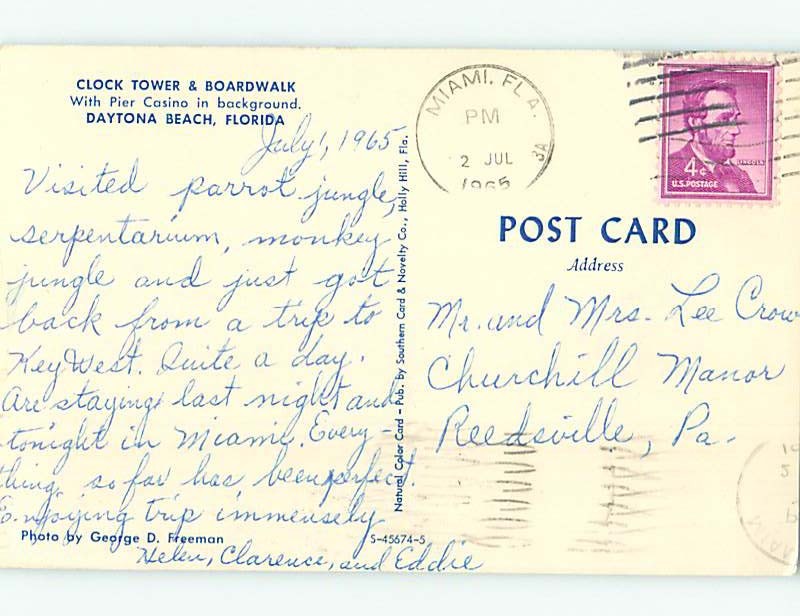 CLOCK TOWER & BOARDWALK
With Pier Casino in background.
DAYTONA BEACH, FLORIDA
July 1, 1965
Visited parrot jungle,
serpentarium, monkey
jungle and just got
back from a trip to
Key West. Quite a day.
Are staying last night and
tonight in Miami. Every-
thing so far has been perfect.
Enjoying trip immensely
Photo by George D. Freeman
S-45674-5
Helen, Clarence, and Eddie
Natural Color Card – Pub. by Southern Card & Novelty Co., Holly Hill, Fla.
MIAMI, FLA.
PM
2 JUL
1965
3A
4¢
LINCOLN
U.S. POSTAGE
POST CARD
Address
Mr. and Mrs. Lee Crow
Churchill Manor
Reedsville, Pa.